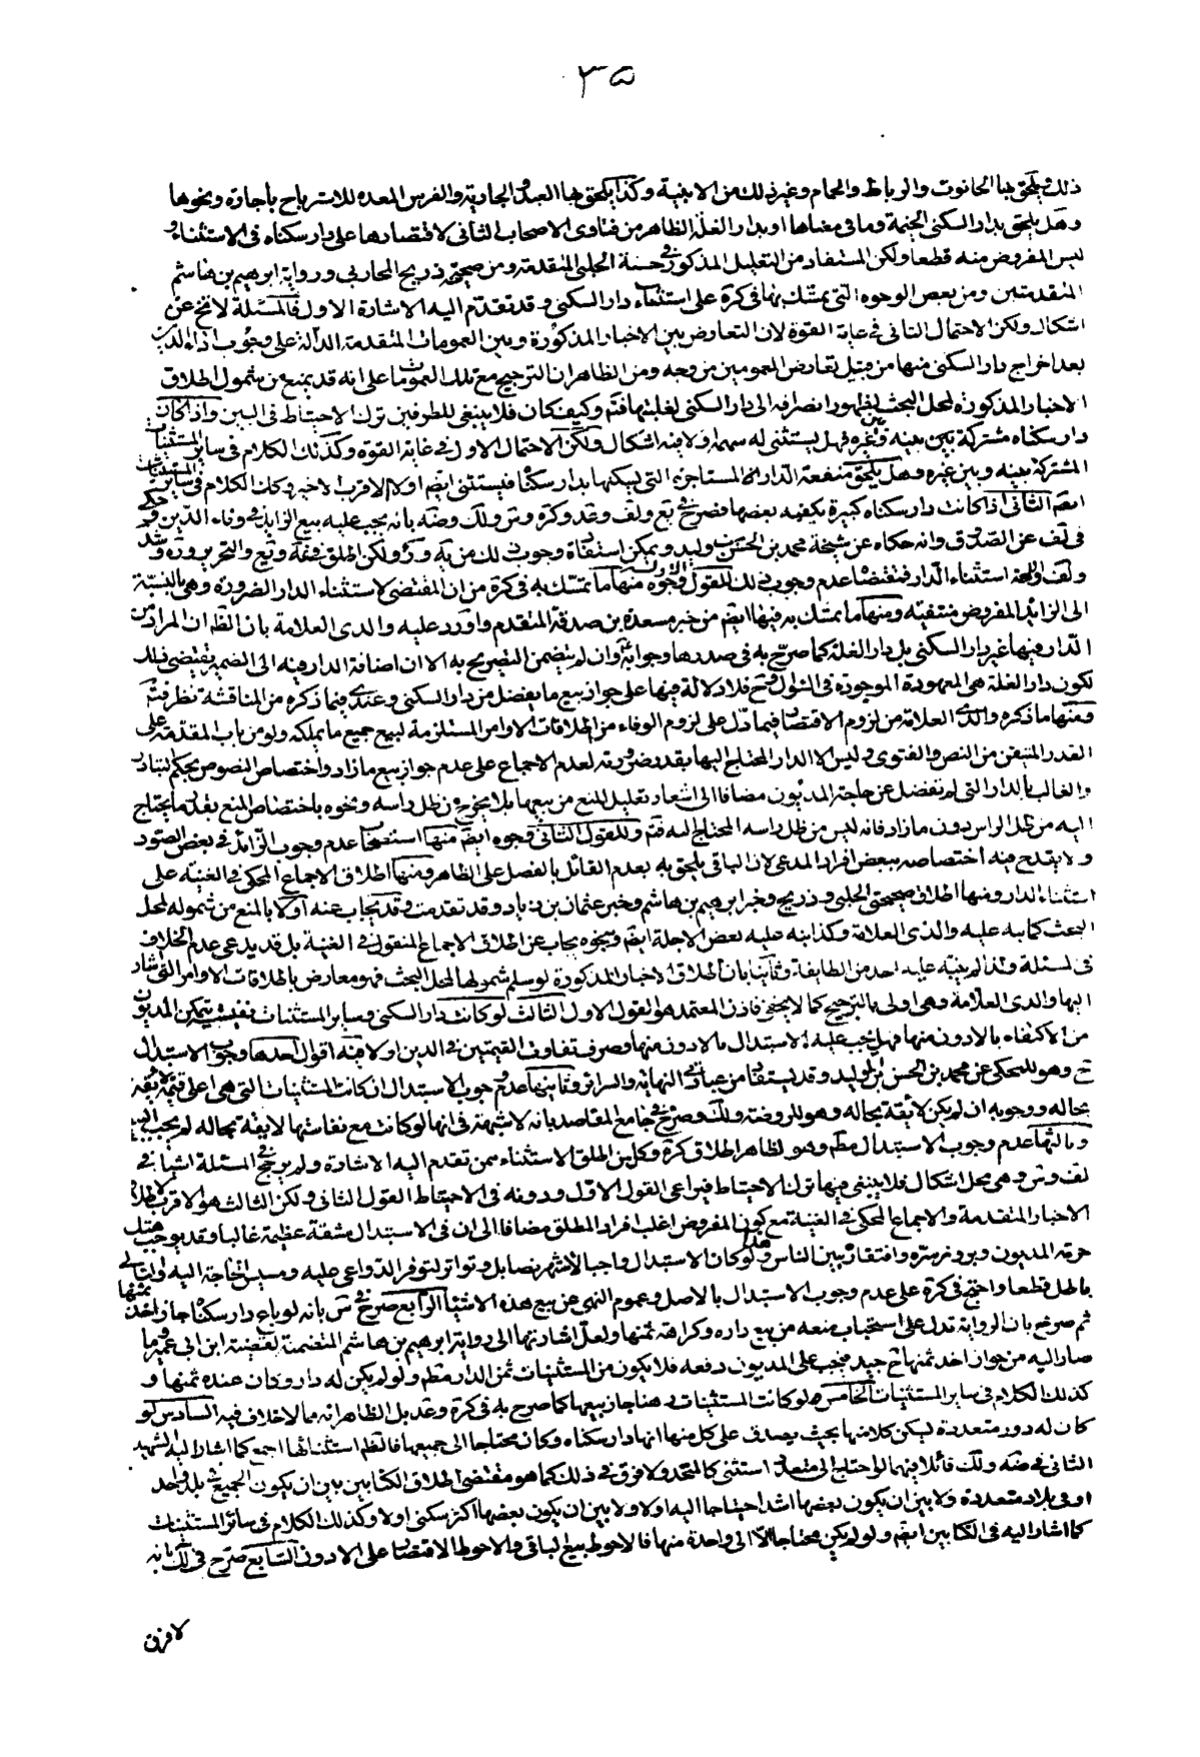 ٣٥
ذلك ويلحق بها الحانوت والرباط والحمام وغير ذلك من الابنية وكذا يلحق بها العبد والجارية والفرس المعده للاسترباح باجارة ونحوها
وهل يلحق بدار السكنى الخيمة وما فى معناها او بدار الغلة الظاهر من فتاوى الاصحاب الثانى لاقتصارها على دار سكناه فى الاستثناء و
ليس المفروض منه قطعا ولكن المستفاد من التعليل المذكور فى حسنة الحلبى المتقدمة ومن صحيحة ذريح المحاربى ورواية ابرهيم بن هاشم
المتقدمتين ومن بعض الوجوه التى تمسّك بها فى كرة على استثناء دار السكنى وقد تقدم اليه الاشارة الاول فالمسئلة لا تخ عن
اشكال ولكن الاحتمال الثانى فى غاية القوة لان التعارض بين الاخبار المذكورة وبين العمومات المتقدمة الدالة على وجوب اداء الدين
بعد اخراج دار السكنى منها من قبيل تعارض العمومين من وجه ومن الظاهر ان الترجيح مع تلك العمومات على انه قد يمنع من شمول اطلاق
الاخبار المذكورة لمحل البحث لظهور انصرافه الى دار السكنى لغلبتها فتم وكيف كان فلا ينبغى للطرفين ترك الاحتياط فى البين واذا كان
دار سكناه مشتركة بين بينه وبين غيره فهل يستثنى له سهمه او لا فيه اشكال ولكن الاحتمال الاول فى غاية القوة وكذلك الكلام فى ساير المستثنيات
المشتركة بينه وبين غيره وهل يلحق منفعة الدار المستاجرة التى يسكنها بدار سكناه فيستثنى ايضا او لا الاقرب الاخير وكك الكلام فى ساير المستثنيات
ايضا الثانى اذا كانت دار سكناه كبيرة يكفيه بعضها فصرح فى يع ولف وعد وكرة وس ولك وضه بانه يجب عليه بيع الزايد فى وفاء الدين وحكى
فى لف عن الصدوق وانه حكاه عن شيخه محمد بن الحسن بن وليد ويمكن استفادة وجوب ذلك من يه ور ولكن اطلق فى فقه ويع والتحرير وشد
ولف والجمعة استثناء الدار فمقتضاه عدم وجوب ذلك للقول الاول وجوه منها ما تمسّك به فى كرة من ان المقتضى لاستثناء الدار الضرورة وهى بالنسبة
الى الزائد المفروض منتفية ومنها ما تمسّك به فيها ايضا من خبر مسعدة بن صدقة المتقدم واورد عليه والدى العلامة بان الظ ان المراد من
الدار فيها غير دار السكنى بل دار الغلة كما صرح به فى صدرها وجوابه وان لم يتضمن التصريح به الا ان اضافة الدار فيه الى الضمير يقتضى ذلك
لكون دار الغلة هى المعهودة الموجودة فى السؤال وح فلا دلالة فيها على جواز بيع ما يفضل من دار السكنى وعندى فيما ذكره من المناقشة نظر فتم
ومنها ما ذكره والدى العلامة من لزوم الاقتصار فيما دل على لزوم الوفاء من اطلاقات الاوامر المستلزمة لبيع جميع ما يملكه ولو من باب المقدمة على
القدر المتيقن من النص والفتوى وليس الا الدار المحتاج اليها بقدر ضرورته لعدم الاجماع على عدم جواز بيع ما زاد واختصاص النصوص بحكم التبادر
والغالب بالدار التى لم تفضل عن حاجة المديون مضافا الى اشعار تعليل المنع من بيعها بلا يخرج من ظل راسه ونحوه باختصاص المنع بقدر ما يحتاج
اليه من ظل الراس دون ما زاد فانه ليس من ظل راسه المحتاج اليه فتم وللقول الثانى وجوه ايضا منها استصحاب عدم وجوب الزائد فى بعض الصور
ولا يقدح فيه اختصاصه ببعض افراد المدعى لان الباقى يلحق به بعدم القائل بالفصل على الظاهر ومنها اطلاق الاجماع المحكى فى الغنية على
استثناء الدار ومنها اطلاق صحيحتى الحلبى وذريح وخبر ابرهيم بن هاشم وخبر عثمان بن زياد وقد تقدمت وقد يجاب عنه اولا بالمنع من شموله لمحل
البحث كما نبه عليه والدى العلامة وكذا نبه عليه بعض الاجلة ايضا وبنحوه يجاب عن اطلاق الاجماع المنقول فى الغنية بل قد يدعى عدم الخلاف
فى المسئلة ولذا لم ينبه عليه احد من الطايفة وثانيا بان اطلاق الاخبار المذكورة لو سلم شمولها لمحل البحث فهو معارض باطلاقات الاوامر التى اشار
اليها والدى العلامة وهى اولى بالترجيح كما لا يخفى فاذن المعتمد هو القول الاول الثالث لو كانت دار السكنى وساير المستثنيات نفيسة يتمكن المديون
من الاكتفاء بالادون منها فهل يجب عليه الاستبدال بالادون منها وصرف تفاوت القيمتين فى الدين او لا فيه اقوال احدها وجوب الاستبدال
ح وهو للمحكى عن محمد بن الحسن بن الوليد وقد يستفاد من عبارتى النهاية والسرائر وثانيها عدم وجوب الاستبدال ان كانت المستثنيات التى هى اعلى قيمة لايقة
بحاله ووجوبه ان لم يكن لايقة بحاله وهو للروضة ولك وصرح فى جامع المقاصد بانه لا شبهة فى انها لو كانت مع نفاستها لايقة بحاله لم يجب البيع
وثالثها عدم وجوب الاستبدال مطلقا وهو لظاهر اطلاق كرة وكل من اطلق الاستثناء ممن تقدم اليه الاشارة ولم يرجح المسئلة اشياء فى
لف وس وهى محل اشكال فلا ينبغى فيها ترك الاحتياط فيراعى القول الاول ودونه فى الاحتياط القول الثانى ولكن الثالث هو الاقرب لاطلاق
الاخبار المتقدمة والاجماع المحكى فى الغنية مع كون المفروض اغلب افراد المطلق مضافا الى ان فى الاستبدال مشقة عظيمة غالبا وقد يوجب هتك
حرمة المديون وبروز سره وافتقاره بين الناس ولو كان الاستبدال واجبا لاشتهر نصا بل وتواتر لتوفر الدواعى عليه ومسيس الحاجة اليه والتالى
باطل قطعا واحتج فى كرة على عدم وجوب الاستبدال بالاصل وعموم النهى عن بيع هذه الاشياء الرابع صرح فى س بانه لو باع دار سكناه جاز اخذ ثمنها
ثم صرح بان الرواية تدل على استحباب منعه من بيع داره وكراهة ثمنها ولعل اشارتها الى رواية ابرهيم بن هاشم المتضمنة لقضية ابن ابى عمير وما
صار اليه من جواز اخذ ثمنها ح جيد فيجب على المديون دفعه فلا يكون من المستثنيات ثمن الدار مطلقا ولو لم يكن له دار وكان عنده ثمنها و
كذلك الكلام فى ساير المستثنيات الخامس لو كانت المستثنيات رهنا جاز بيعها كما صرح به فى كرة وعد بل الظاهر انه مما لا خلاف فيه السادس لو
كان له دور متعددة يسكن كلا منها بحيث يصدق على كل منها انها دار سكناه وكان محتاجا الى جميعها فالظ استثنائها اجمع كما اشار اليه الشهيد
الثانى فى ضه ولك قائلا فيهما لو احتاج الى متعدد استثنى كالمتحد ولا فرق فى ذلك كما هو مقتضى اطلاق الكتابين بين ان يكون الجميع فى بلد واحد
او فى بلاد متعددة ولا بين ان يكون بعضها اشد احتياجا اليه اولا ولا بين ان يكون بعضها اكثر سكنى او لا وكذلك الكلام فى سائر المستثنيات
كما اشار اليه فى الكتابين ايضا ولو لم يكن محتاجا الا الى واحدة منها فالاحوط بيع الباقى والاحوط الاقتصار على الادون السابع صرح فى لك بانه
لا فرق